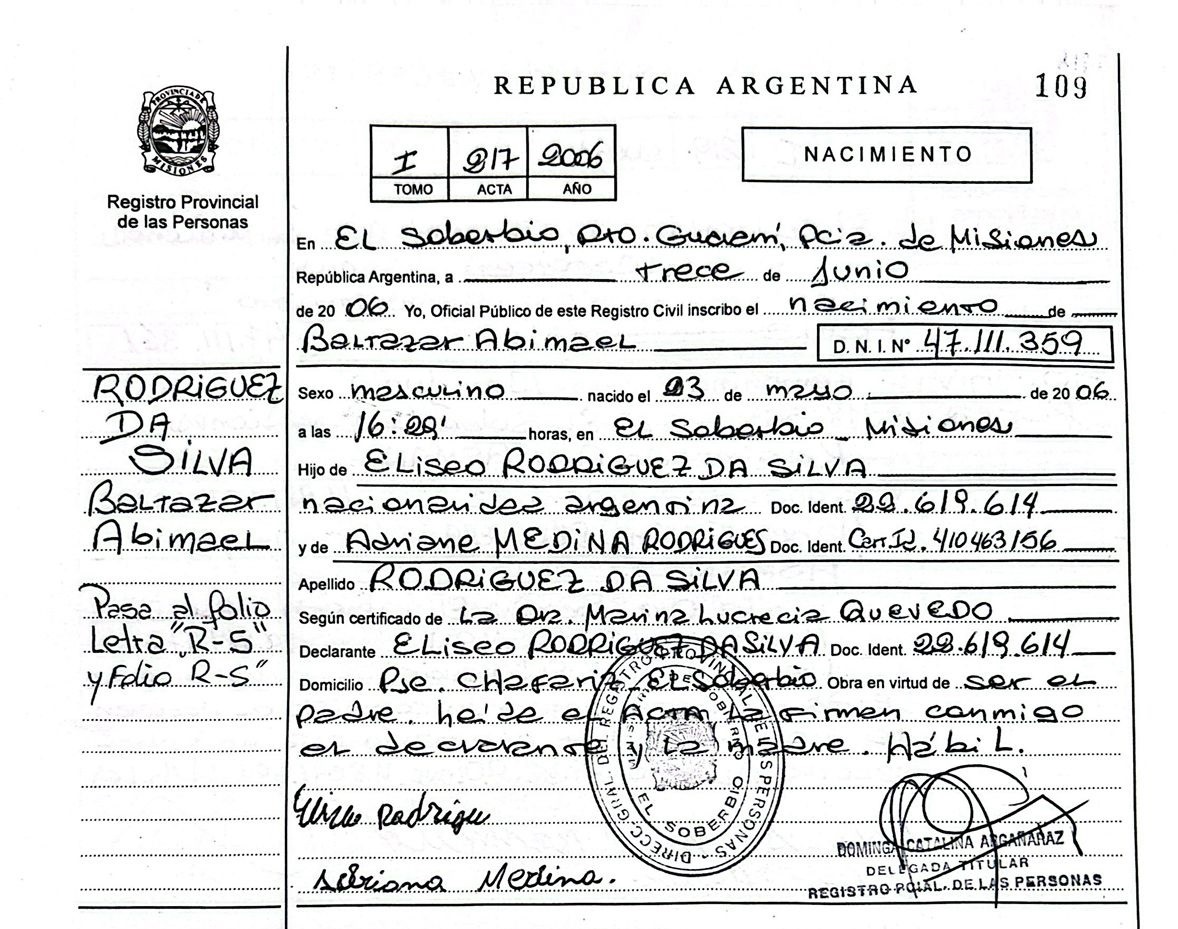 REPUBLICA ARGENTINA
109
PROVINCIA DE MISIONES
Registro Provincial
de las Personas
I 217 2006
TOMO ACTA AÑO
NACIMIENTO
En EL Soberbio, Dto. Guaraní, Pcia. de Misiones
República Argentina, a trece de Junio
de 2006. Yo, Oficial Público de este Registro Civil inscribo el nacimiento de
Baltazar Abimael D.N.I. N° 47.111.359
Sexo masculino nacido el 23 de mayo de 2006
a las 16:20' horas, en El Soberbio - Misiones
Hijo de Eliseo RODRiGUEZ DA SiLVA
nacionalidad argentina Doc. Ident. 22.619.614
y de Adriane MEDINA RODRIGUES Doc. Ident. Car.Id. 410463156
Apellido RODRiGUEZ DA SiLVA
Según certificado de La Dra. Marina Lucrecia QUEVEDO
Declarante ELiseo RODRiGUEZ DA SiLVA Doc. Ident. 22.619.614
Domicilio Pje. Chafariz El Soberbio Obra en virtud de ser el
padre. heída el ACTA La firman conmigo
el declarante y La madre. Hábil.
RODRiGUEZ
DA
SiLVA
Baltazar
Abimael
Pasa al folio
Letra "R-S"
y Folio R-S"
DIRECC. GRAL. DEL REGISTRO PROVINCIAL DE LAS PERSONAS
EL SOBERBIO
Rodrigu
Adriana Medina.
DOMINGA CATALINA ARGAÑARAZ
DELEGADA TITULAR
REGISTRO PCIAL. DE LAS PERSONAS